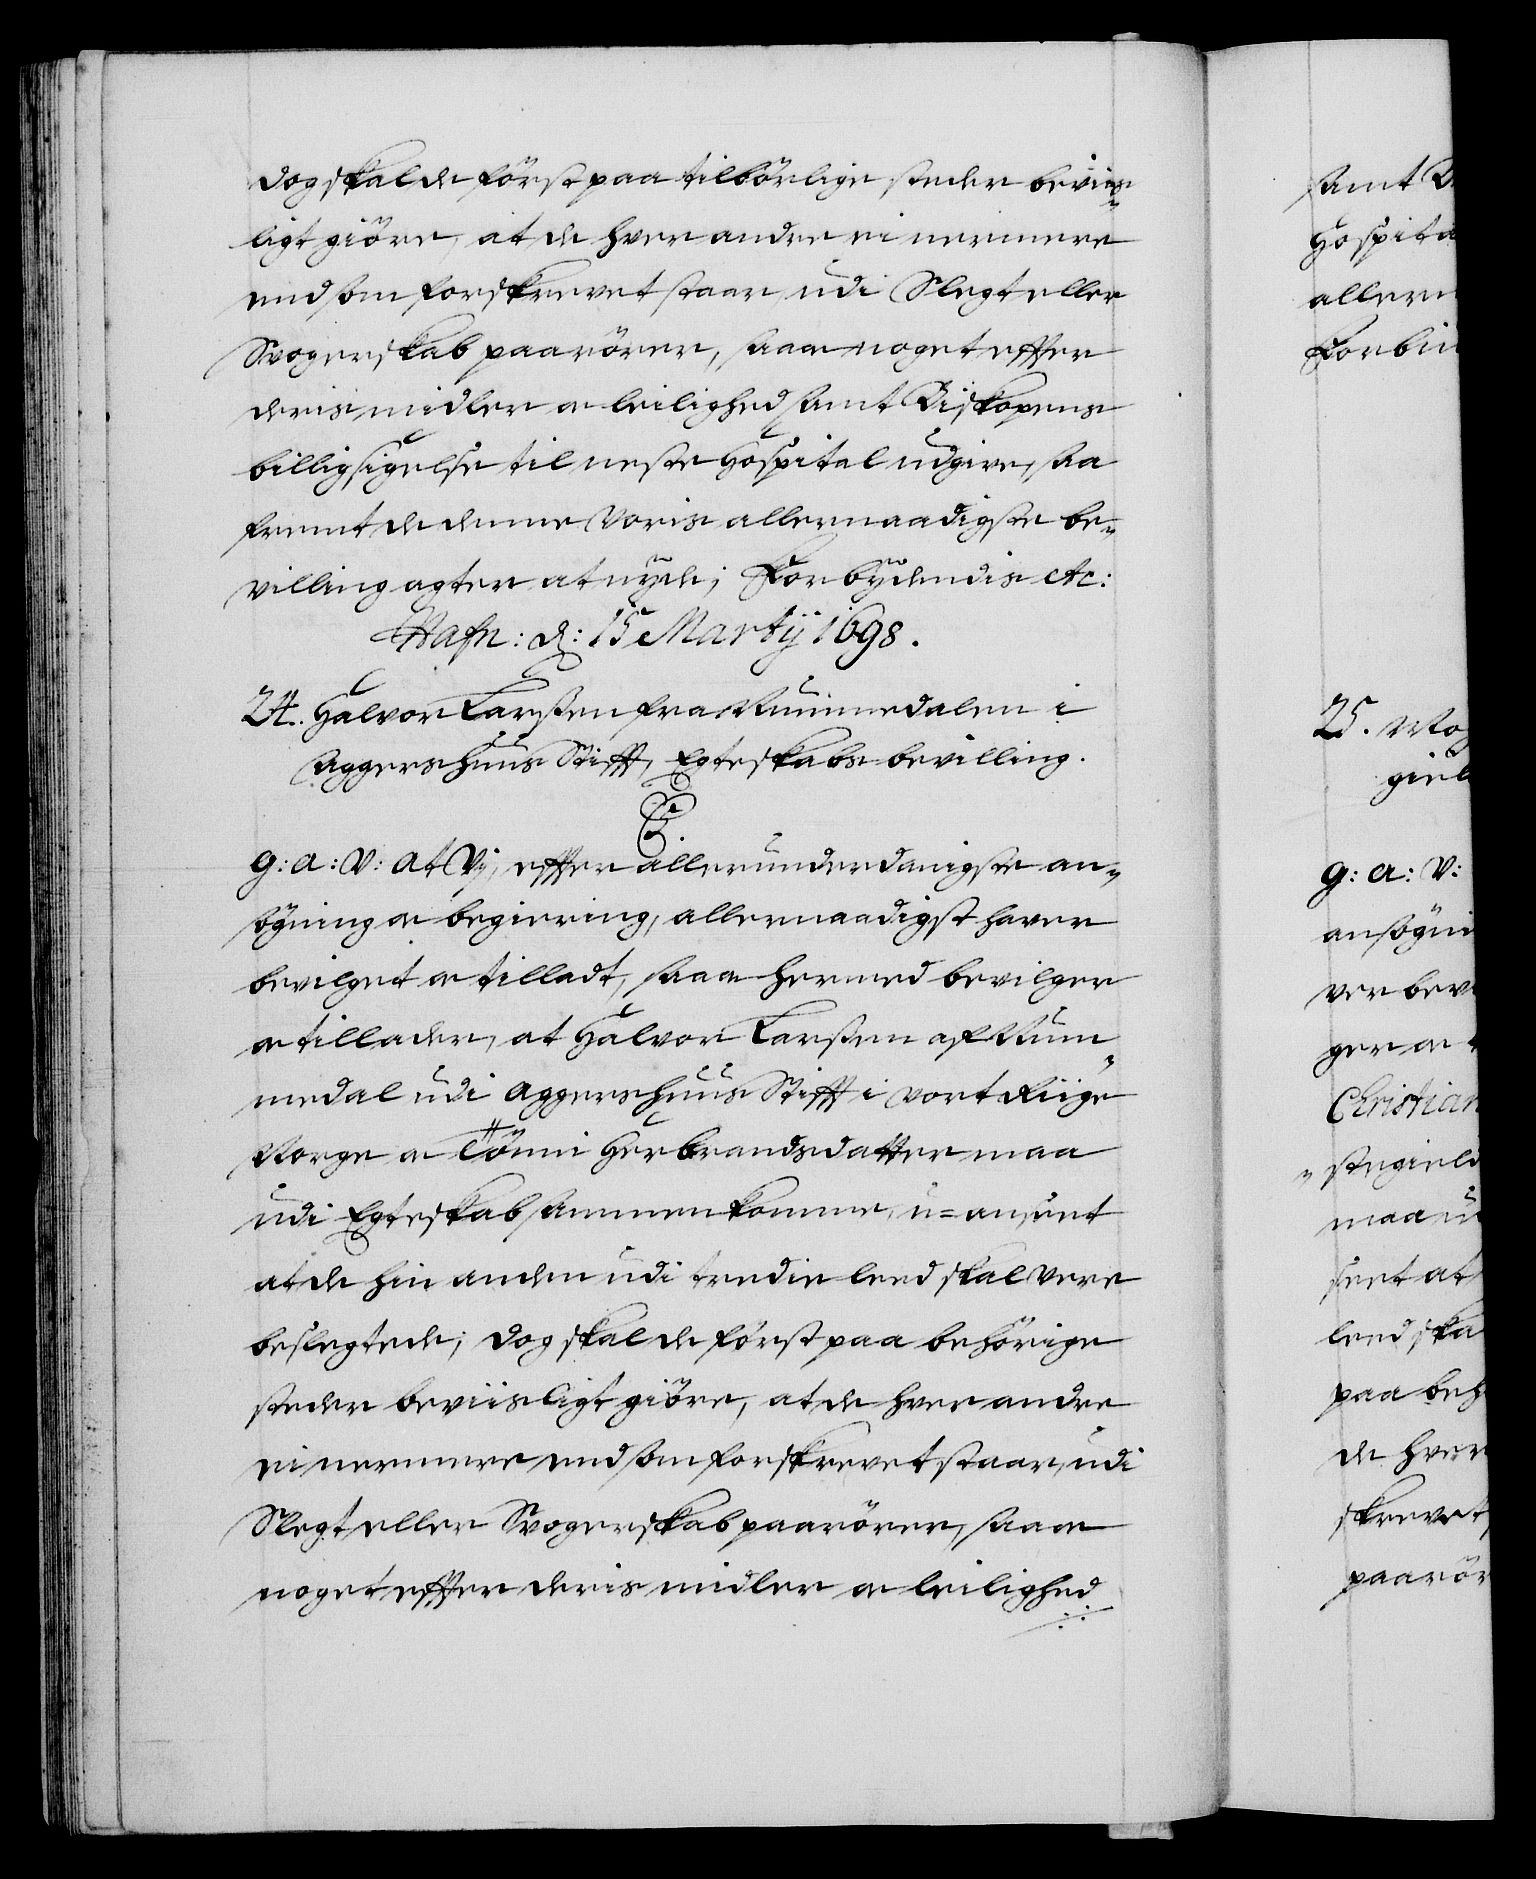 dog skal de först paa tilbörlige steder beviis¬
ligt giöre, at de hver andre ei nermere
end som forskrevet staar, udi Slegt eller
Svogerskab paarörer, saa oc noget effter
deris midler oc leilighed samt Biskopens
billigsigelse til neste Hospital udgive, saa
fremt de denne Voris allernaadigste be¬
villing agter at nyde; Forbydendis etc:
Hafn: d: 15 Martij 1698.
24. Halvor Larssen fra Nummedalen i
Aggershuus Stifft, Egteskabs bevilling.
C5.
G: a: V: at Vj, effter allerunderdanigste an¬
sögning oc begiering, allernaadigst haver
bevilget oc tilladt, saa oc hermed bevilger
oc tillader, at Halvor Larssen af Num¬
medal udi Aggershuus Stifft i vort Riige
Norge oc Tönni Herbrandsdatter maa
udi Egteskab sammenkomme, u=anseet
at de hin anden udi tredie leed skal vere
beslegtede; dog skal de först paa behörige
steder beviisligt giöre, at de hver andre
ei nermere end som forskrevet staar, udi
Slegt eller Svogerskab paarörer, saa oc
noget effter deris midler oc leilighed
samt B
Hospita
allern
Forbiu
25. Mog
giel
G: a: V:
ansögni
ver bevi
ger oc t
Christian
stegield
maa u
seet at
leed ska
paa beh
de hver
skrevet
paarör